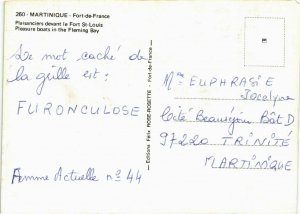 260 - MARTINIQUE - Fort-de-France
Plaisanciers devant le Fort St-Louis
Pleasure boats in the Fleming Bay
Le mot caché de
la grille est :
FURONCULOSE
Femme Actuelle no 44
Editions Félix ROSE-ROSETTE - Fort-de-France
Mme EUPHRASIE
Jocelyne
Cité Beauséjour Bât D
97220 TRINITÉ
MARTINIQUE